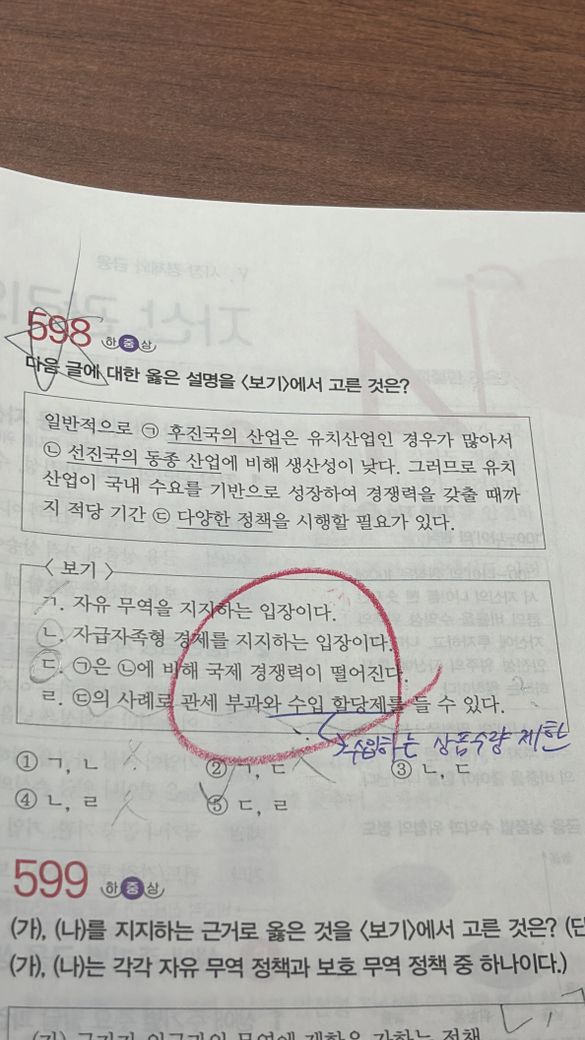 598 하 중 상
다음 글에 대한 옳은 설명을 <보기>에서 고른 것은?
일반적으로 ㉠ 후진국의 산업은 유치산업인 경우가 많아서
㉡ 선진국의 동종 산업에 비해 생산성이 낮다. 그러므로 유치
산업이 국내 수요를 기반으로 성장하여 경쟁력을 갖출 때까
지 적당 기간 ㉢ 다양한 정책을 시행할 필요가 있다.
< 보기 >
ㄱ. 자유 무역을 지지하는 입장이다.
ㄴ. 자급자족형 경제를 지지하는 입장이다.
ㄷ. ㉠은 ㉡에 비해 국제 경쟁력이 떨어진다.
ㄹ. ㉢의 사례로 관세 부과와 수입 할당제를 들 수 있다.
수입하는 상품수량 제한
① ㄱ, ㄴ ② ㄱ, ㄷ ③ ㄴ, ㄷ
④ ㄴ, ㄹ ⑤ ㄷ, ㄹ
599 하 중 상
(가), (나)를 지지하는 근거로 옳은 것을 <보기>에서 고른 것은? (단
(가), (나)는 각각 자유 무역 정책과 보호 무역 정책 중 하나이다.)